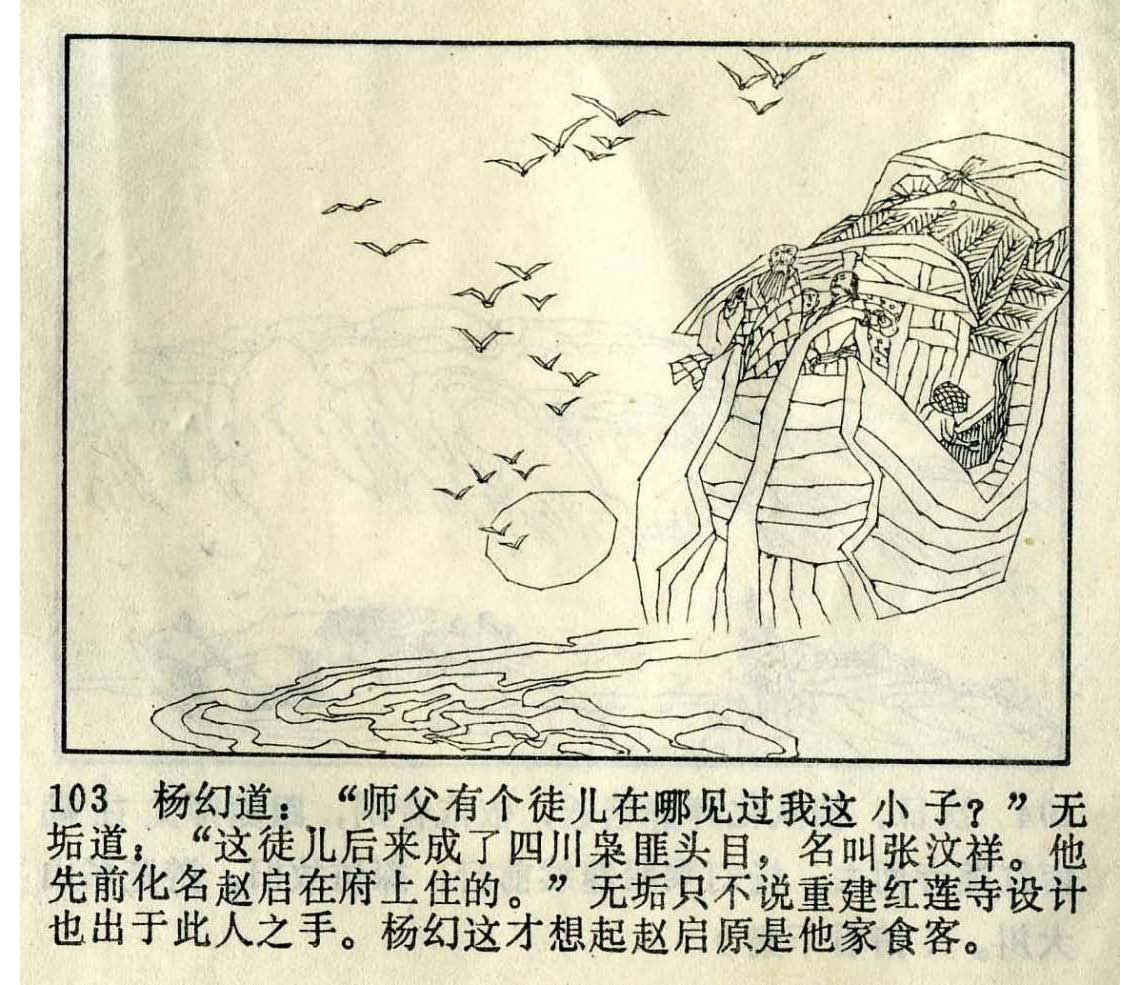 103 杨幻道：“师父有个徒儿在哪见过我这小子？”无
垢道：“这徒儿后来成了四川枭匪头目，名叫张汶祥。他
先前化名赵启在府上住的。”无垢只不说重建红莲寺设计
也出于此人之手。杨幻这才想起赵启原是他家食客。